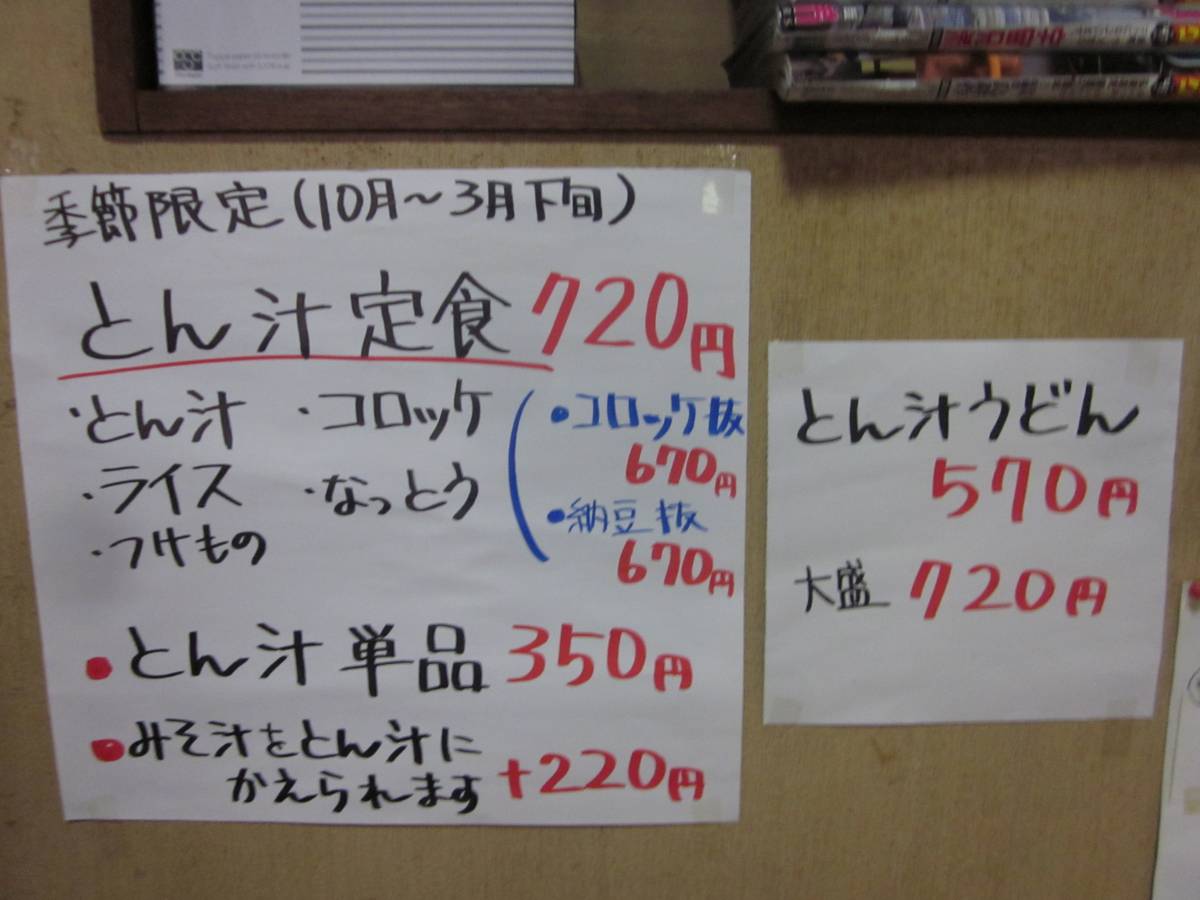 季節限定(10月～3月下旬)
とん汁定食 720円
・とん汁 ・コロッケ
・ライス ・なっとう
・つけもの
●コロッケ抜
670円
●納豆抜
670円
●とん汁単品 350円
●みそ汁をとん汁に
かえられます +220円
とん汁うどん
570円
大盛 720円